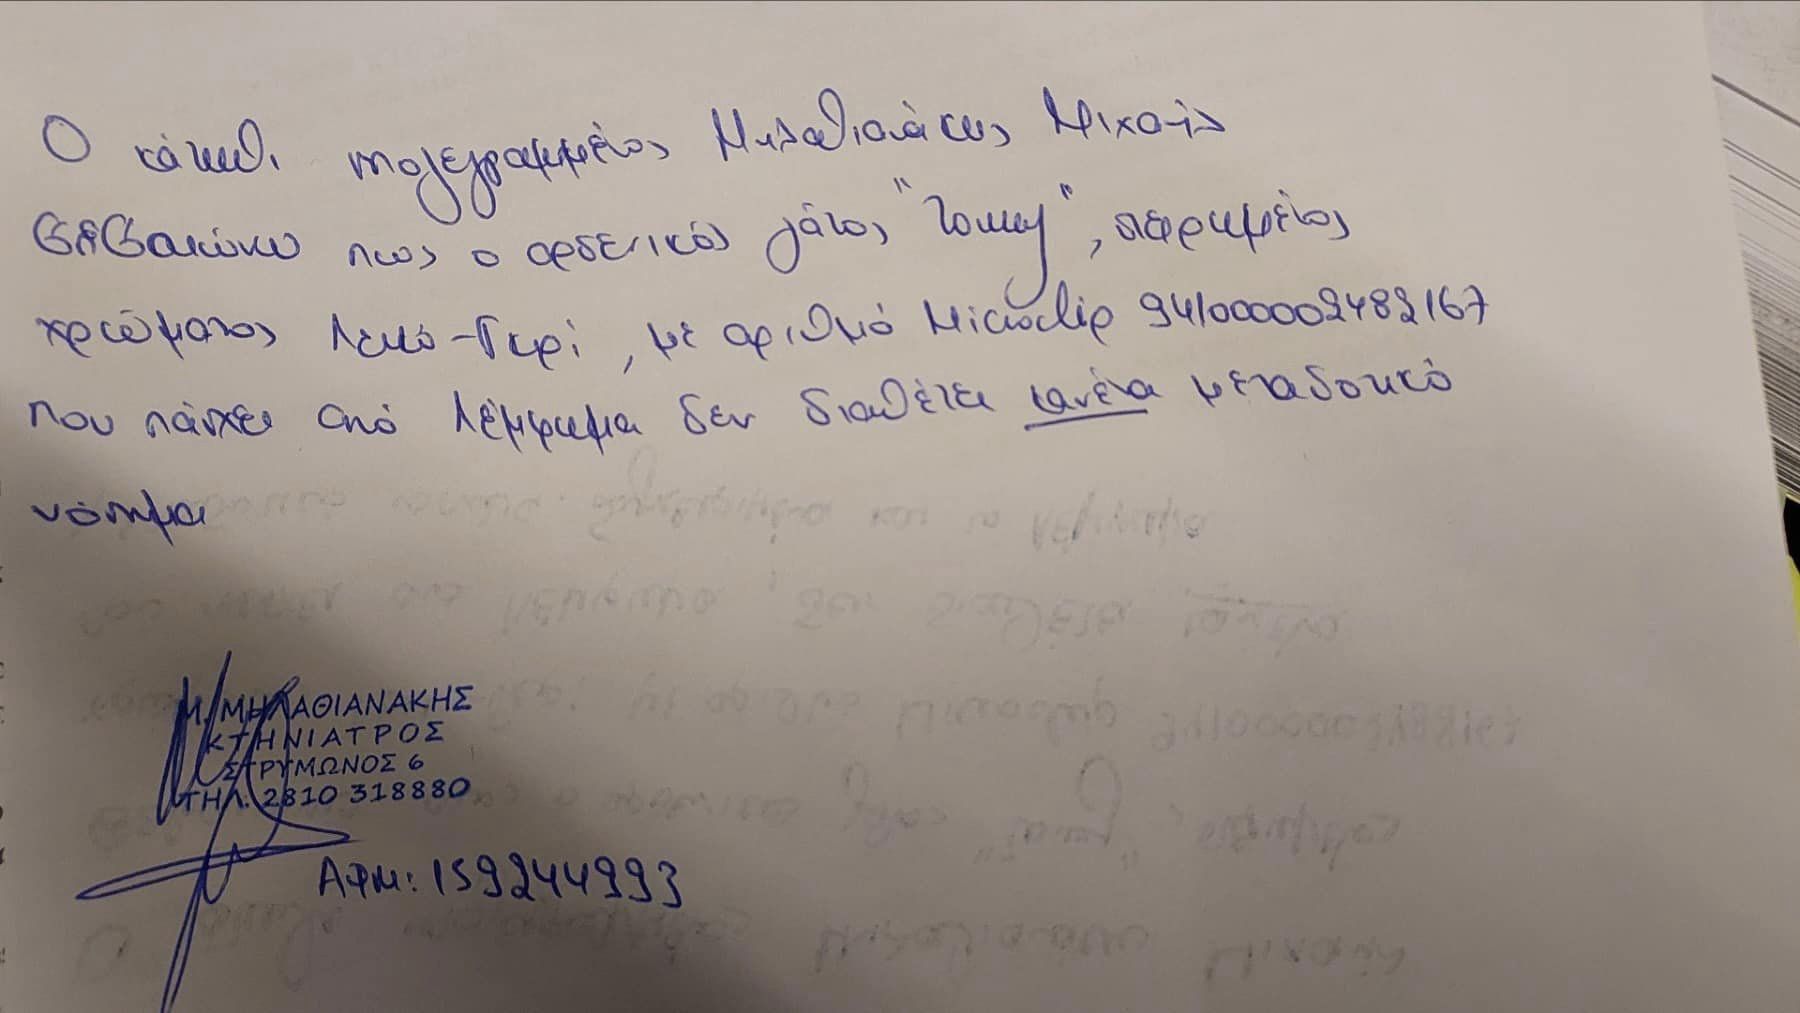 Ο κάτωθι υπογεγραμμένος Μηλαθιανάκης Μιχαήλ
βεβαιώνω πως ο αρσενικός γάτος "Tommy", στειρωμένος
χρώματος Λευκό-Γκρί, με αριθμό Microchip 941000002482167
που πάσχει από λέμφωμα δεν διαθέτει κανένα μεταδοτικό
νόσημα
Μ. ΜΗΛΑΘΙΑΝΑΚΗΣ
ΚΤΗΝΙΑΤΡΟΣ
ΣΤΡΥΜΩΝΟΣ 6
ΤΗΛ. 2810 318880
ΑΦΜ: 159244993